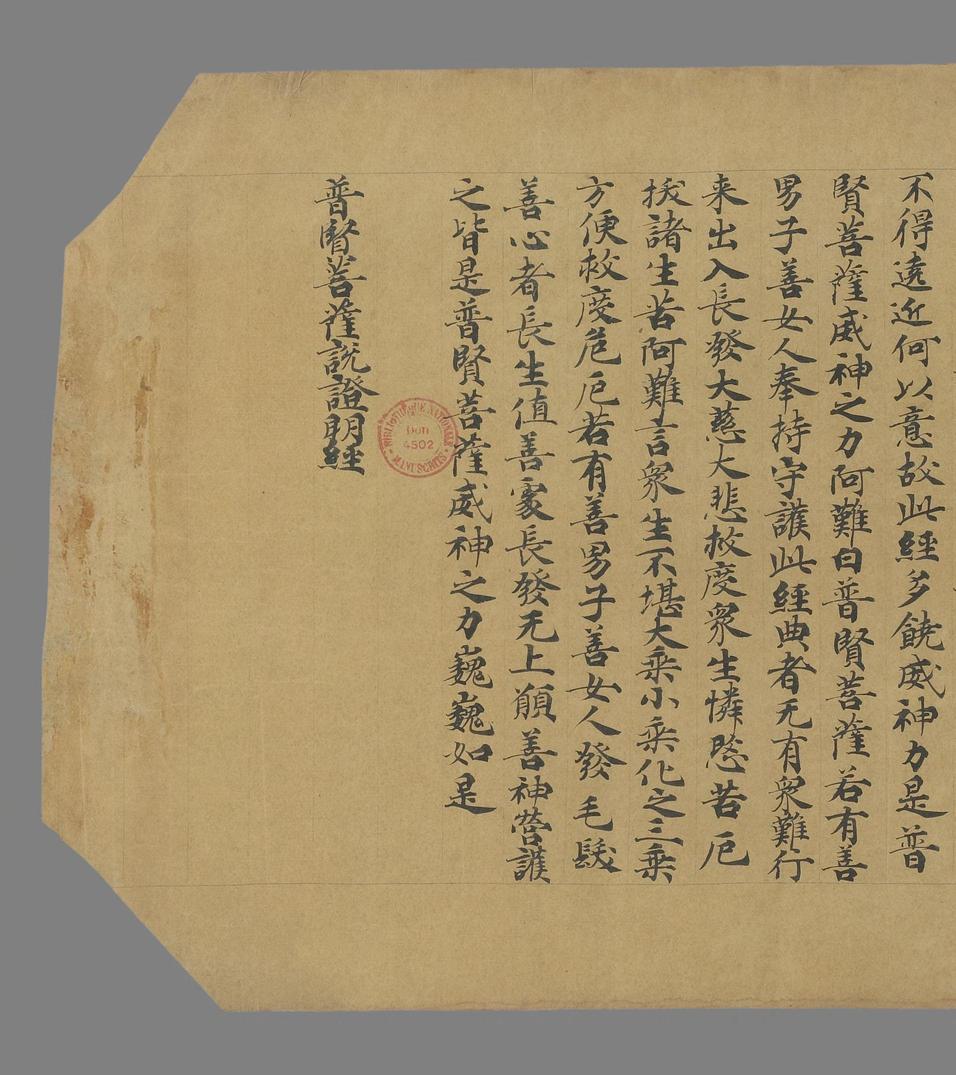 不得遠近何以意故此經多饒威神力是普
賢菩薩威神之力阿難曰普賢菩薩若有善
男子善女人奉持守護此經典者无有衆難行
来出入長發大慈大悲救度衆生憐愍苦厄
拔諸生苦阿難言衆生不堪大乘小乘化之三乘
方便救度危厄若有善男子善女人發毛髮
善心者長生值善家長發无上願善神營護
之皆是普賢菩薩威神之力巍巍如是
普賢菩薩説證明經
BIBLIOTHÈQUE NATIONALE
Don
4502
MANUSCRITS